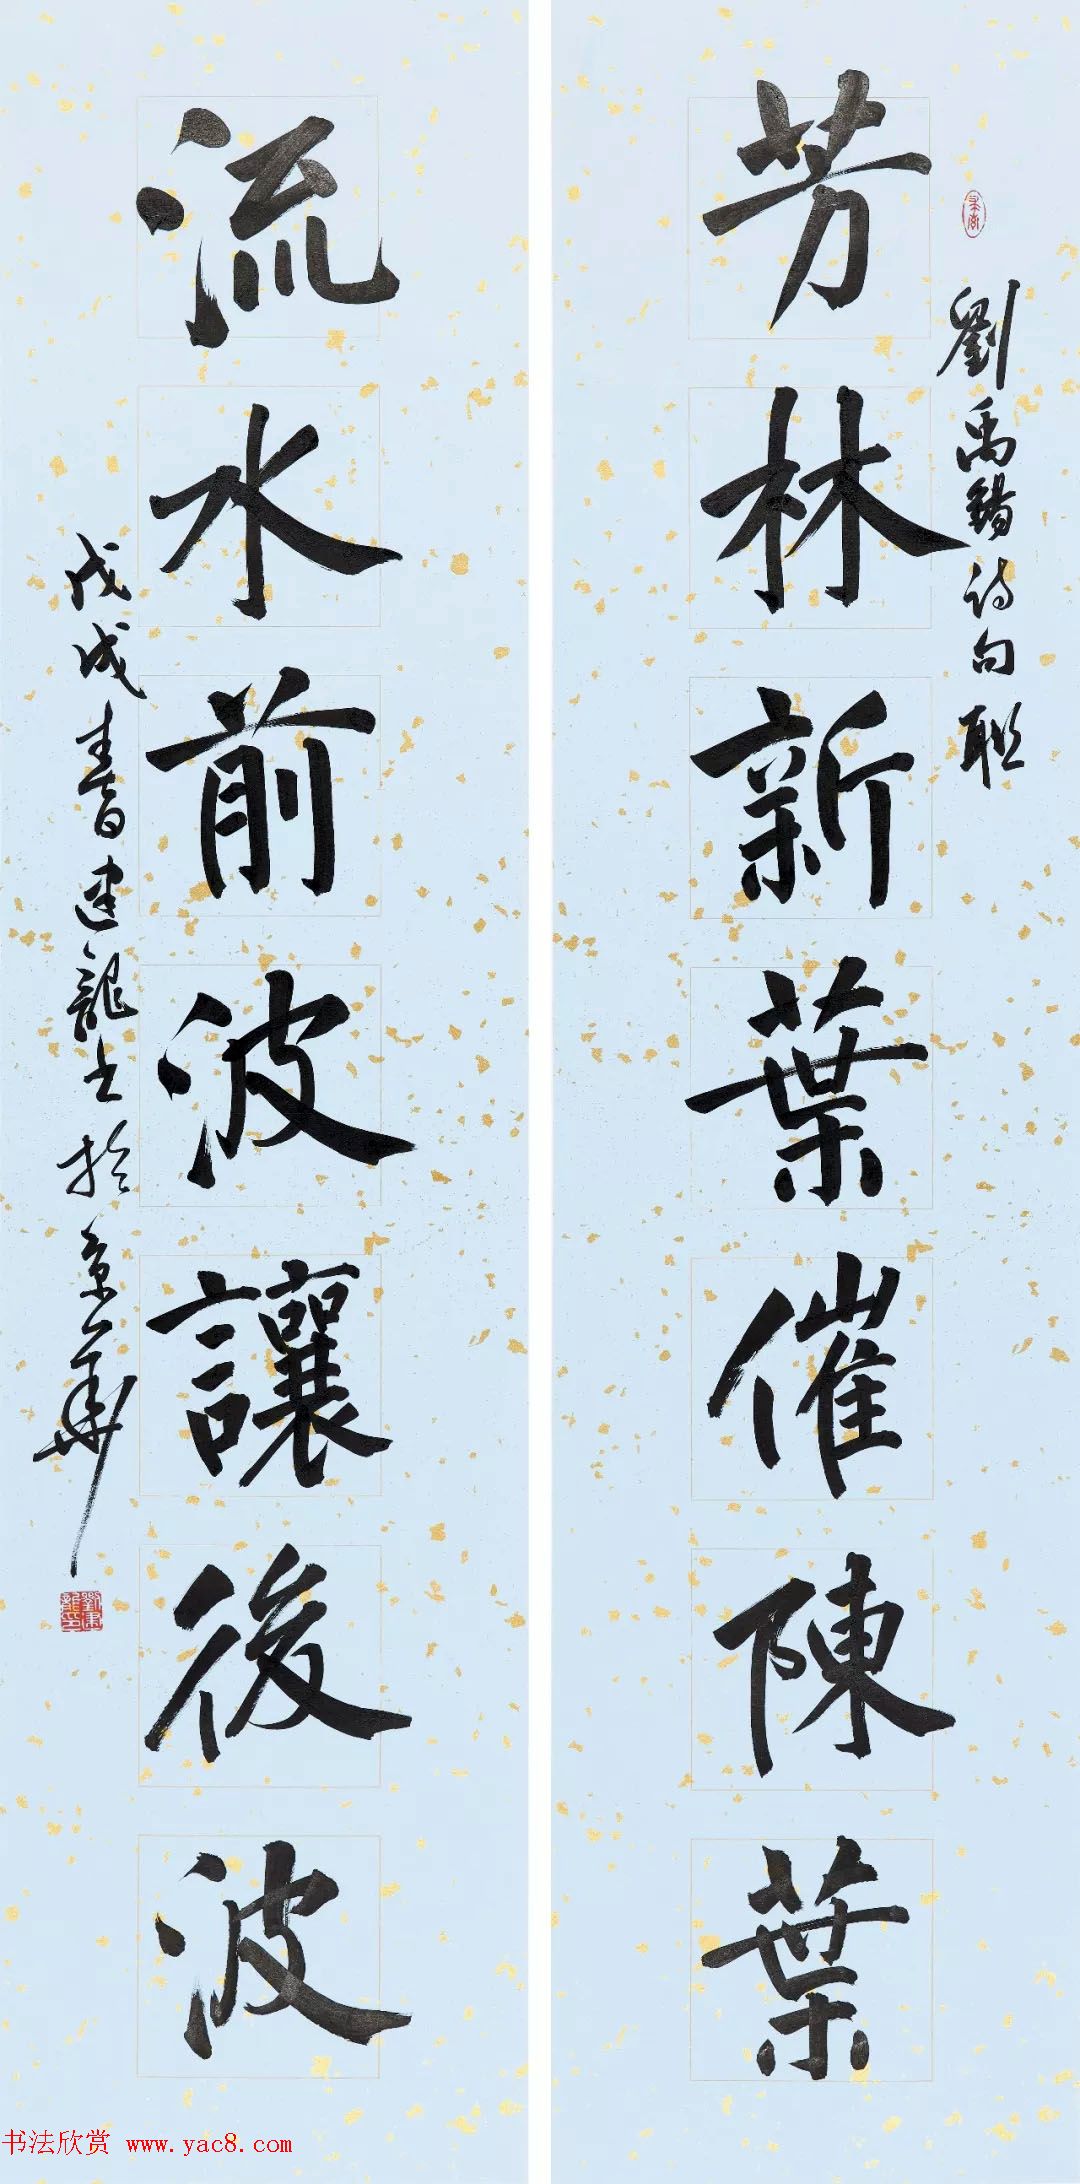 劉禹錫诗句聯
芳林新葉催陳葉
流水前波讓後波
戊戌春建龍书於京華
劉建龍印
书法欣赏 www.yac8.com